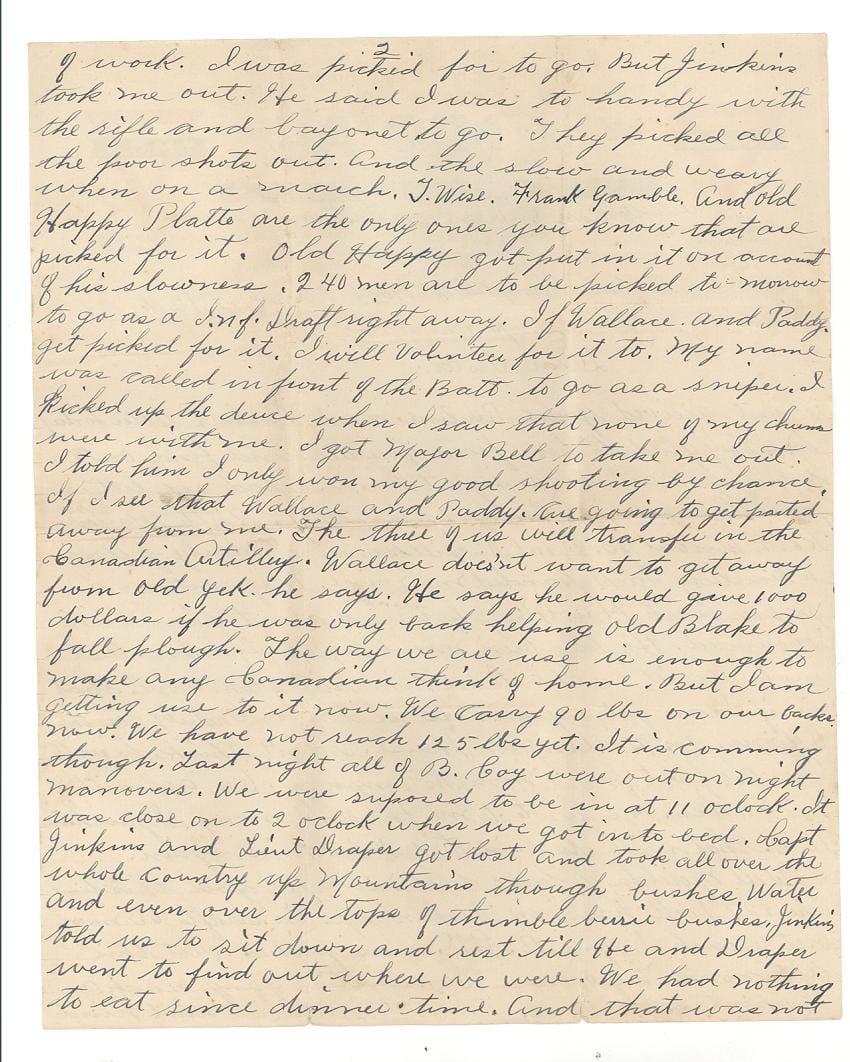 2
of work. I was picked for to go. But Jinkins
took me out. He said I was to handy with
the rifle and bayonet to go. They picked all
the poor shots out. And the slow and weary
when on a march. T. Wise. Frank Gamble. And old
Happy Platte are the only ones you know that are
picked for it. Old Happy got put in it on account
of his slowness. 240 men are to be picked to-morrow
to go as a Inf. Draft right away. If Wallace. and Paddy.
get picked for it. I will Volinteer for it to. My name
was called in front of the Batt. to go as a sniper. I
Kicked up the deuce when I saw that none of my chums
were with me. I got Major Bell to take me out.
I told him I only won my good shooting by chance.
If I see that Wallace and Paddy. are going to get parted
away from me. The three of us will transfer in the
Canadian Artillery. Wallace does'nt want to get away
from old Yek. he says. He says he would give 1000
dollars if he was only back helping old Blake to
fall plough. The way we are use is enough to
make any Canadian think of home. But I am
getting use to it now. We carry 90 lbs on our backs.
now. We have not reach 125 lbs yet. It is comming
though. Last night all of B. Coy were out on night
manovers. We were suposed to be in at 11 oclock. It
was close on to 2 oclock when we got in to bed. Capt
Jinkins and Lieut Draper got lost and took all over the
whole country up Mountains through bushes, Water
and even over the tops of thimble berrie bushes. Jinkins
told us to sit down and rest till He and Draper
went to find out where we were. We had nothing
to eat since dinner time. And that was not